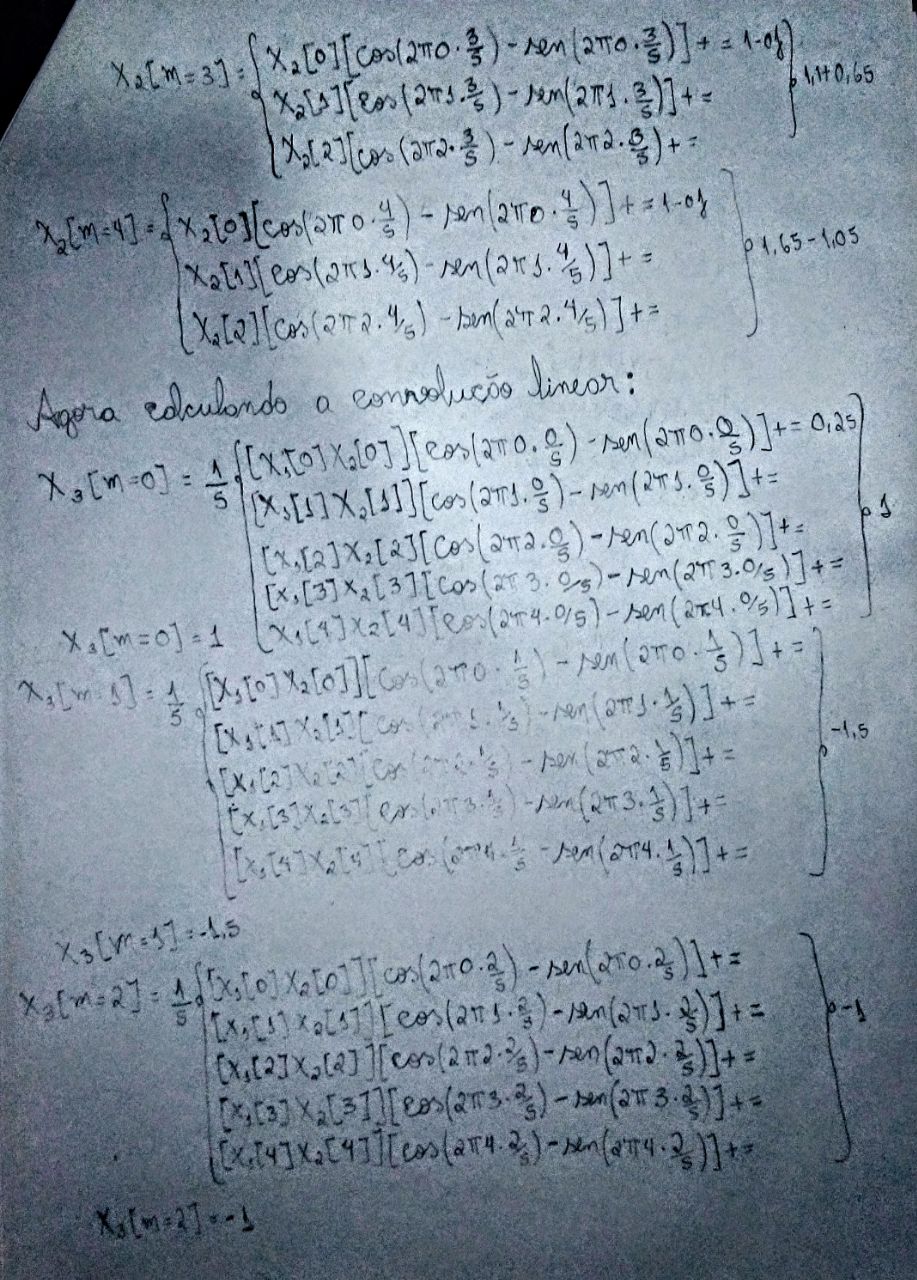 X₂[m=3] = { X₂[0][cos(2π0.3/5) - sen(2π0.3/5)] + = 1-0j
X₂[1][cos(2π1.3/5) - sen(2π1.3/5)] + = } 1,1+0,65
X₂[2][cos(2π2.3/5) - sen(2π2.3/5) + =
X₂[m=4] = { X₂[0][cos(2π0.4/5) - sen(2π0.4/5)] + = 1-0j
X₂[1][cos(2π1.4/5) - sen(2π1.4/5)] + = } 1,65-1,05
X₂[2][cos(2π2.4/5) - sen(2π2.4/5)] + =
Agora calculando a convolução linear:
X₃[m=0] = 1/5 { [X₁[0]X₂[0]][cos(2π0.0/5) - sen(2π0.0/5)] + = 0,25
[X₁[1]X₂[1]][cos(2π1.0/5) - sen(2π1.0/5)] + =
[X₁[2]X₂[2][cos(2π2.0/5) - sen(2π2.0/5)] + = } 1
[X₁[3]X₂[3][cos(2π3.0/5) - sen(2π3.0/5)] + =
[X₁[4]X₂[4][cos(2π4.0/5) - sen(2π4.0/5)] + =
X₃[m=0] = 1
X₃[m=1] = 1/5 { [X₁[0]X₂[0]][cos(2π0.1/5) - sen(2π0.1/5)] + =
[X₁[1]X₂[1][cos(2π1.1/5) - sen(2π1.1/5)] + =
[X₁[2]X₂[2][cos(2π2.1/5) - sen(2π2.1/5)] + = } -1,5
[X₁[3]X₂[3][cos(2π3.1/5) - sen(2π3.1/5)] + =
[X₁[4]X₂[4][cos(2π4.1/5 - sen(2π4.1/5)] + =
X₃[m=1] = -1,5
X₃[m=2] = 1/5 { [X₁[0]X₂[0]][cos(2π0.2/5) - sen(2π0.2/5)] + =
[X₁[1]X₂[1]][cos(2π1.2/5) - sen(2π1.2/5)] + = } -1
[X₁[2]X₂[2]][cos(2π2.2/5) - sen(2π2.2/5)] + =
[X₁[3]X₂[3]][cos(2π3.2/5) - sen(2π3.2/5)] + =
[X₁[4]X₂[4]][cos(2π4.2/5) - sen(2π4.2/5)] + =
X₃[m=2] = -1